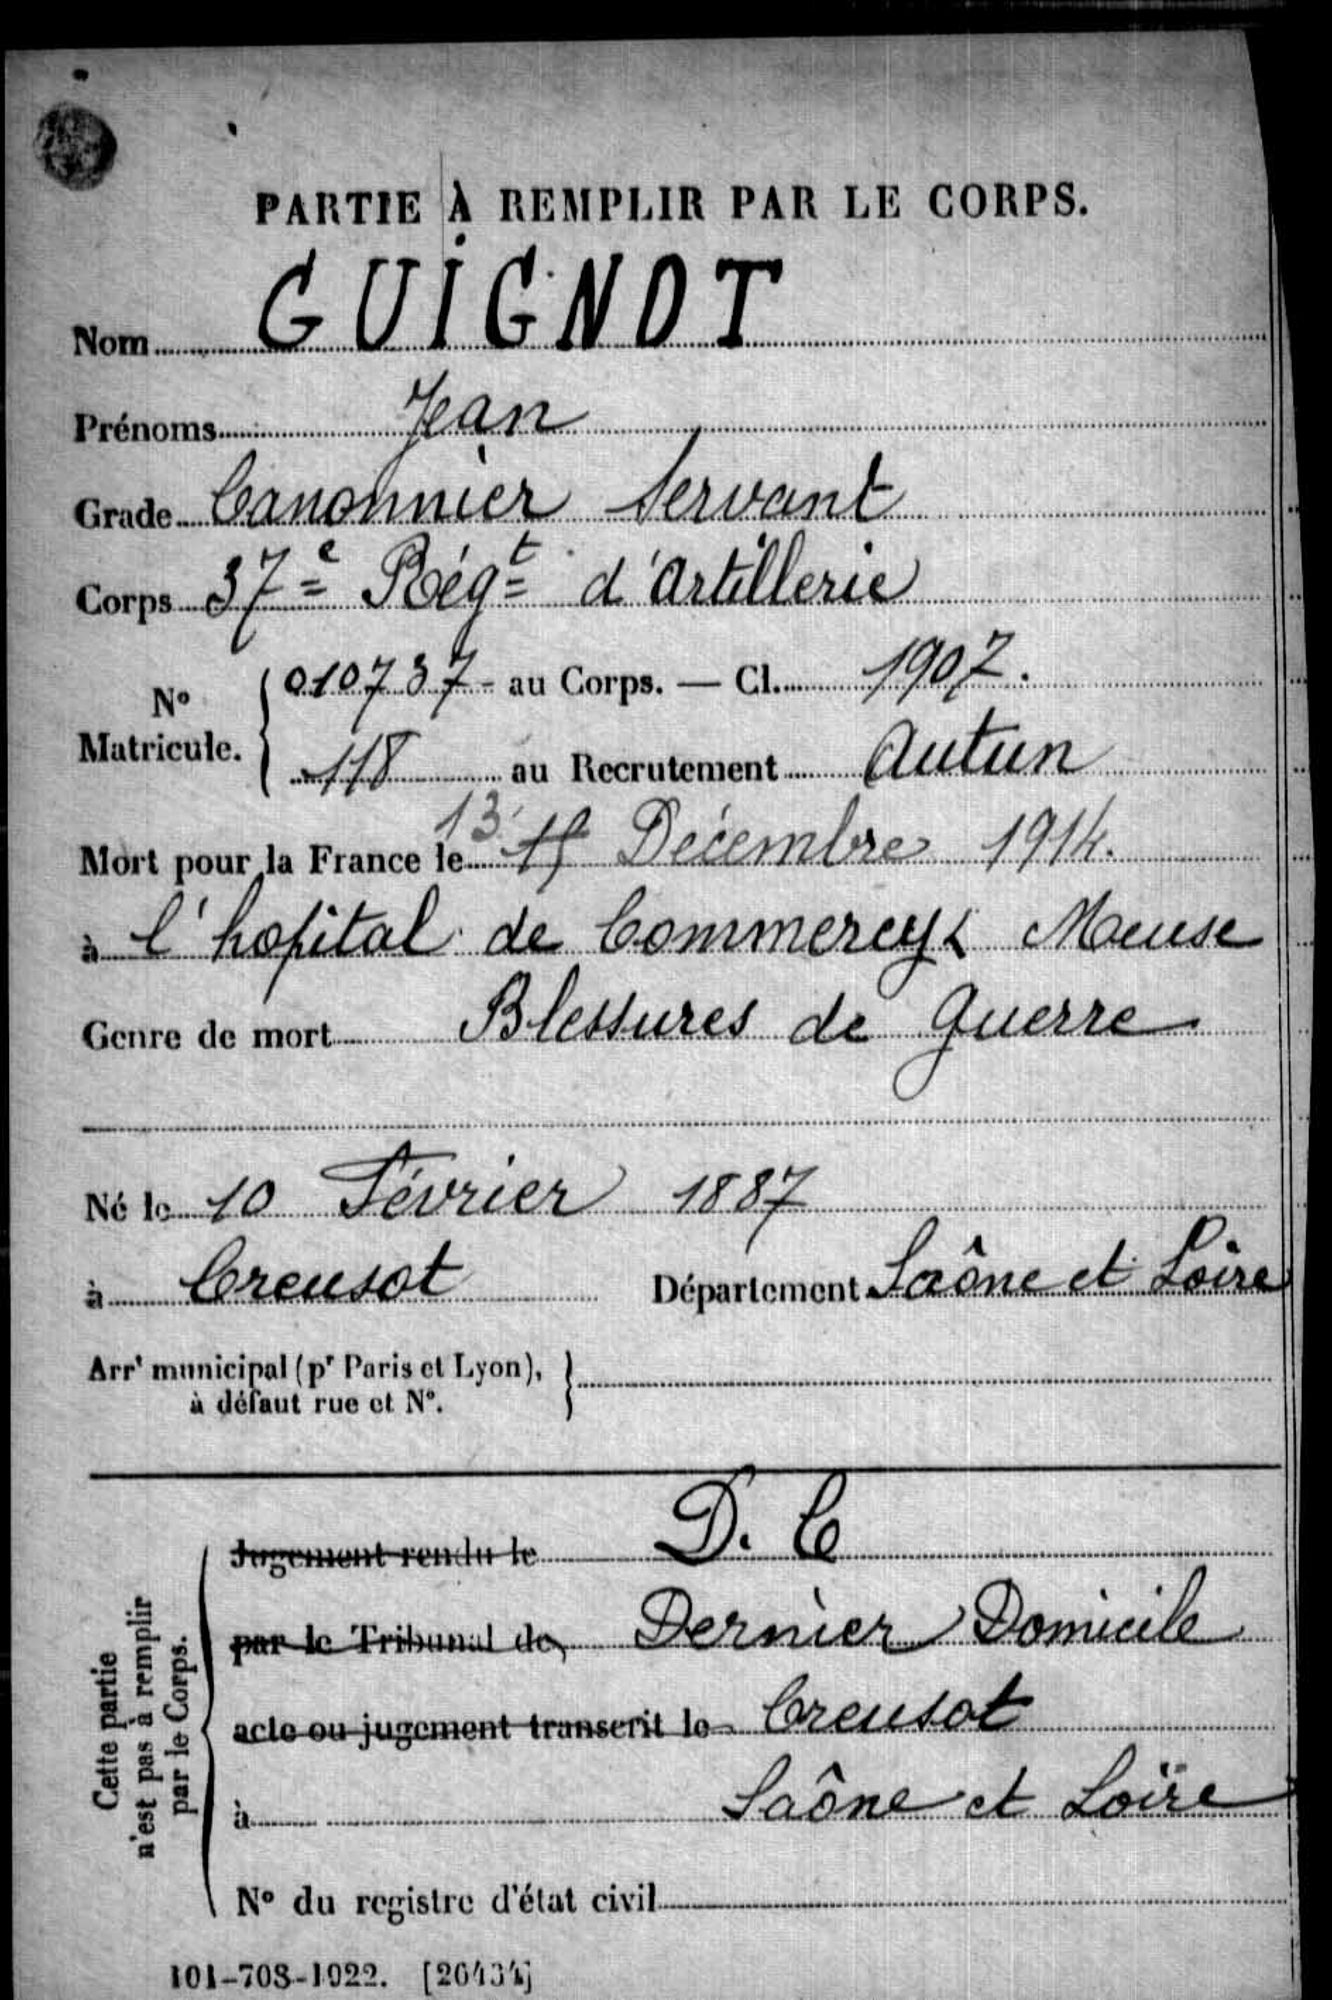 PARTIE À REMPLIR PAR LE CORPS.
Nom GUIGNOT
Prénoms Jean
Grade Canonnier Servant
Corps 37e Régt d'Artillerie
No Matricule. 010737 au Corps. — Cl. 1907.
118 au Recrutement Autun
Mort pour la France le 13 15 Décembre 1914.
à l'hopital de Commercy Meuse
Genre de mort Blessures de Guerre
Né le 10 Février 1887
à Creusot Département Saône et Loire
Arrt municipal (pr Paris et Lyon),
à défaut rue et N°.
Cette partie
n'est pas à remplir
par le Corps.
Jugement rendu le D. C
par le Tribunal de Dernier Domicile
acte ou jugement transcrit le Creusot
à Saône et Loire
N° du registre d'état civil
101-708-1922. [26434]